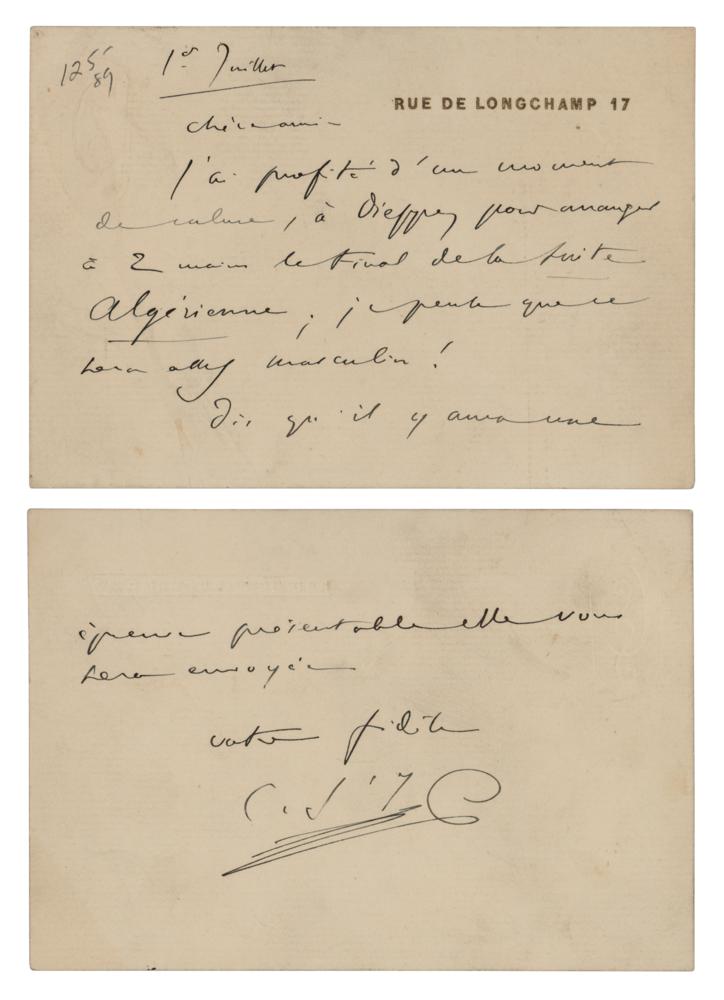 125
89
1er Juillet
RUE DE LONGCHAMP 17
chère amie
J'ai profité d'un moment
de calme, à Dieppe, pour arranger
à 2 mains le Final de la Suite
Algérienne; je pense que ce
sera assez masculin!
Dès qu'il y aura une
épreuve présentable elle vous
sera envoyée
votre fidèle
C. S